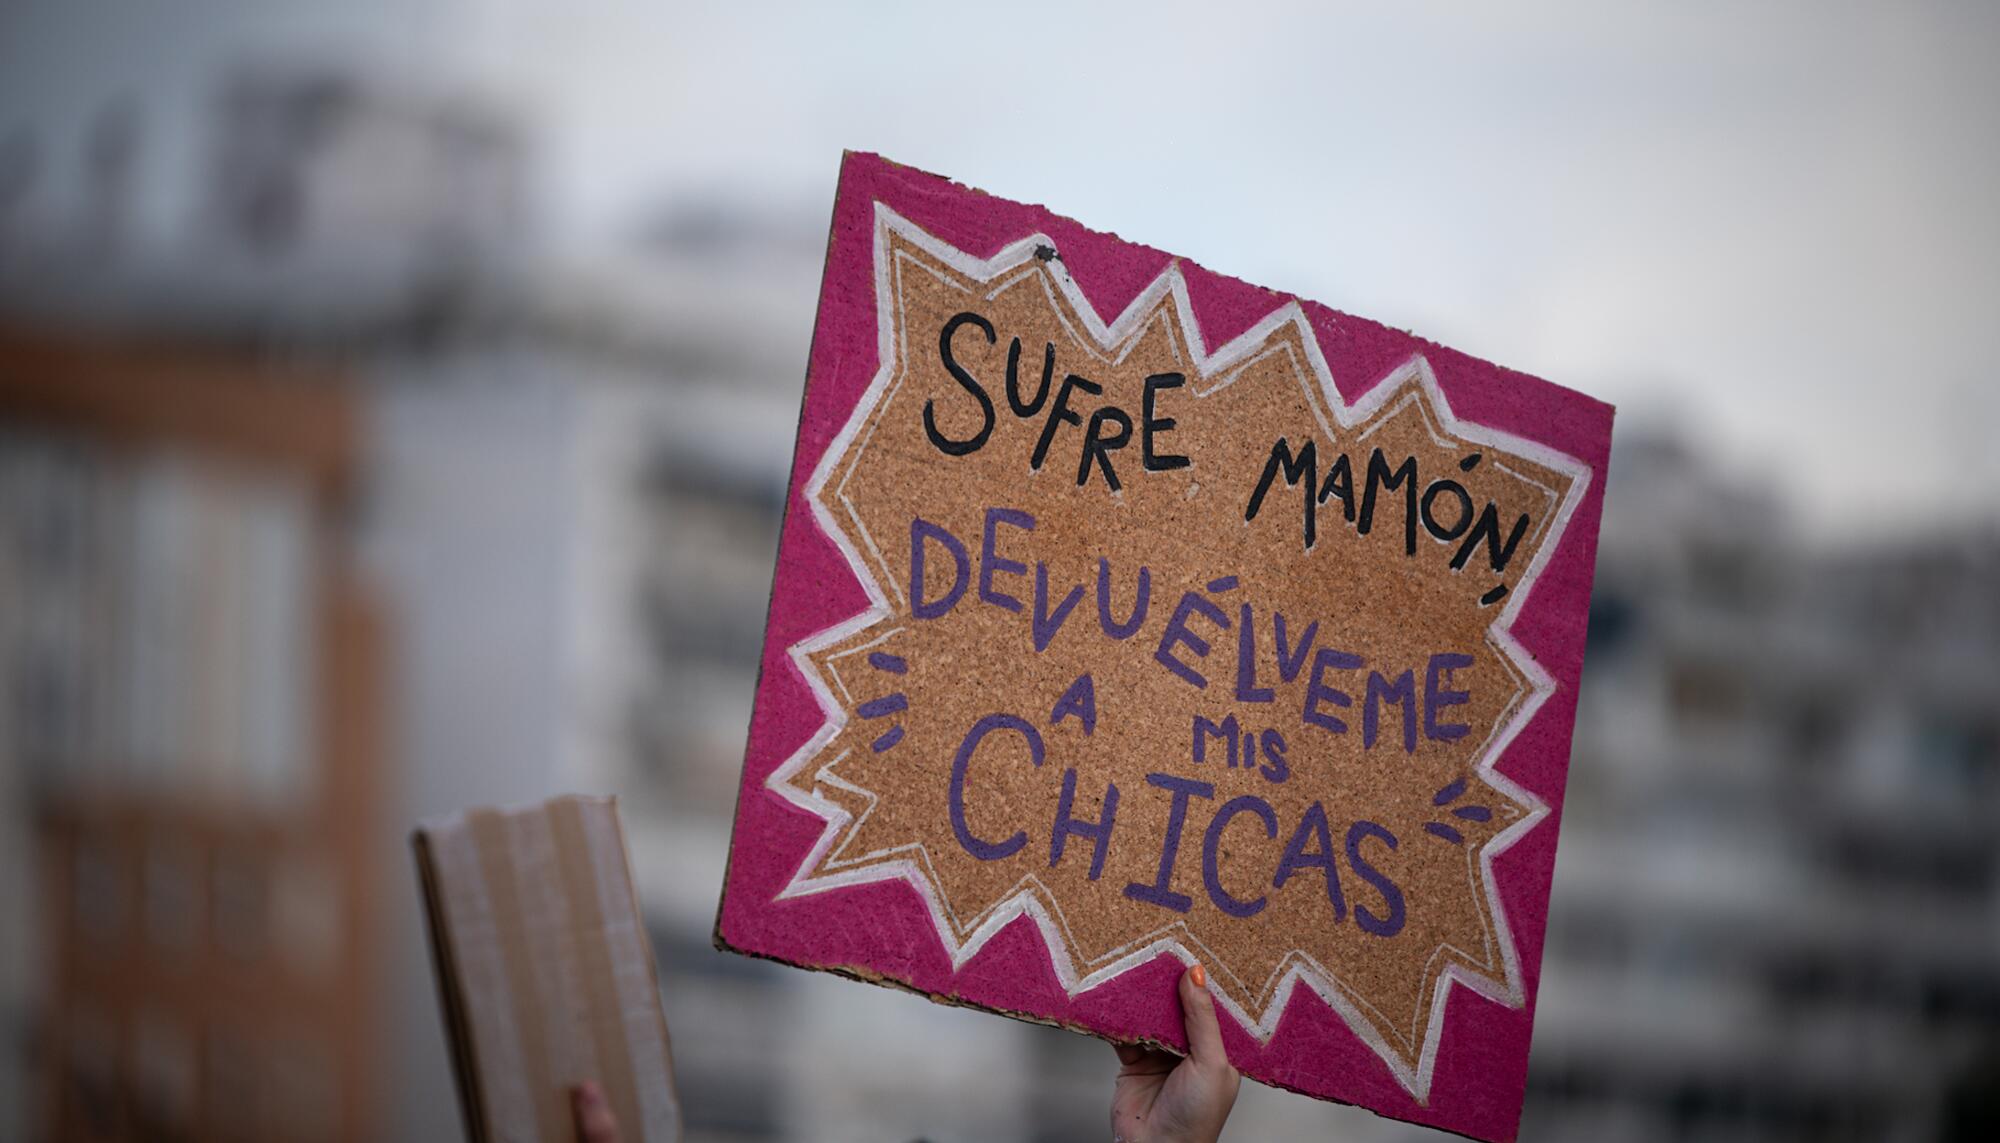 SUFRE MAMÓN,
DEVUÉLVEME
A MIS
CHICAS